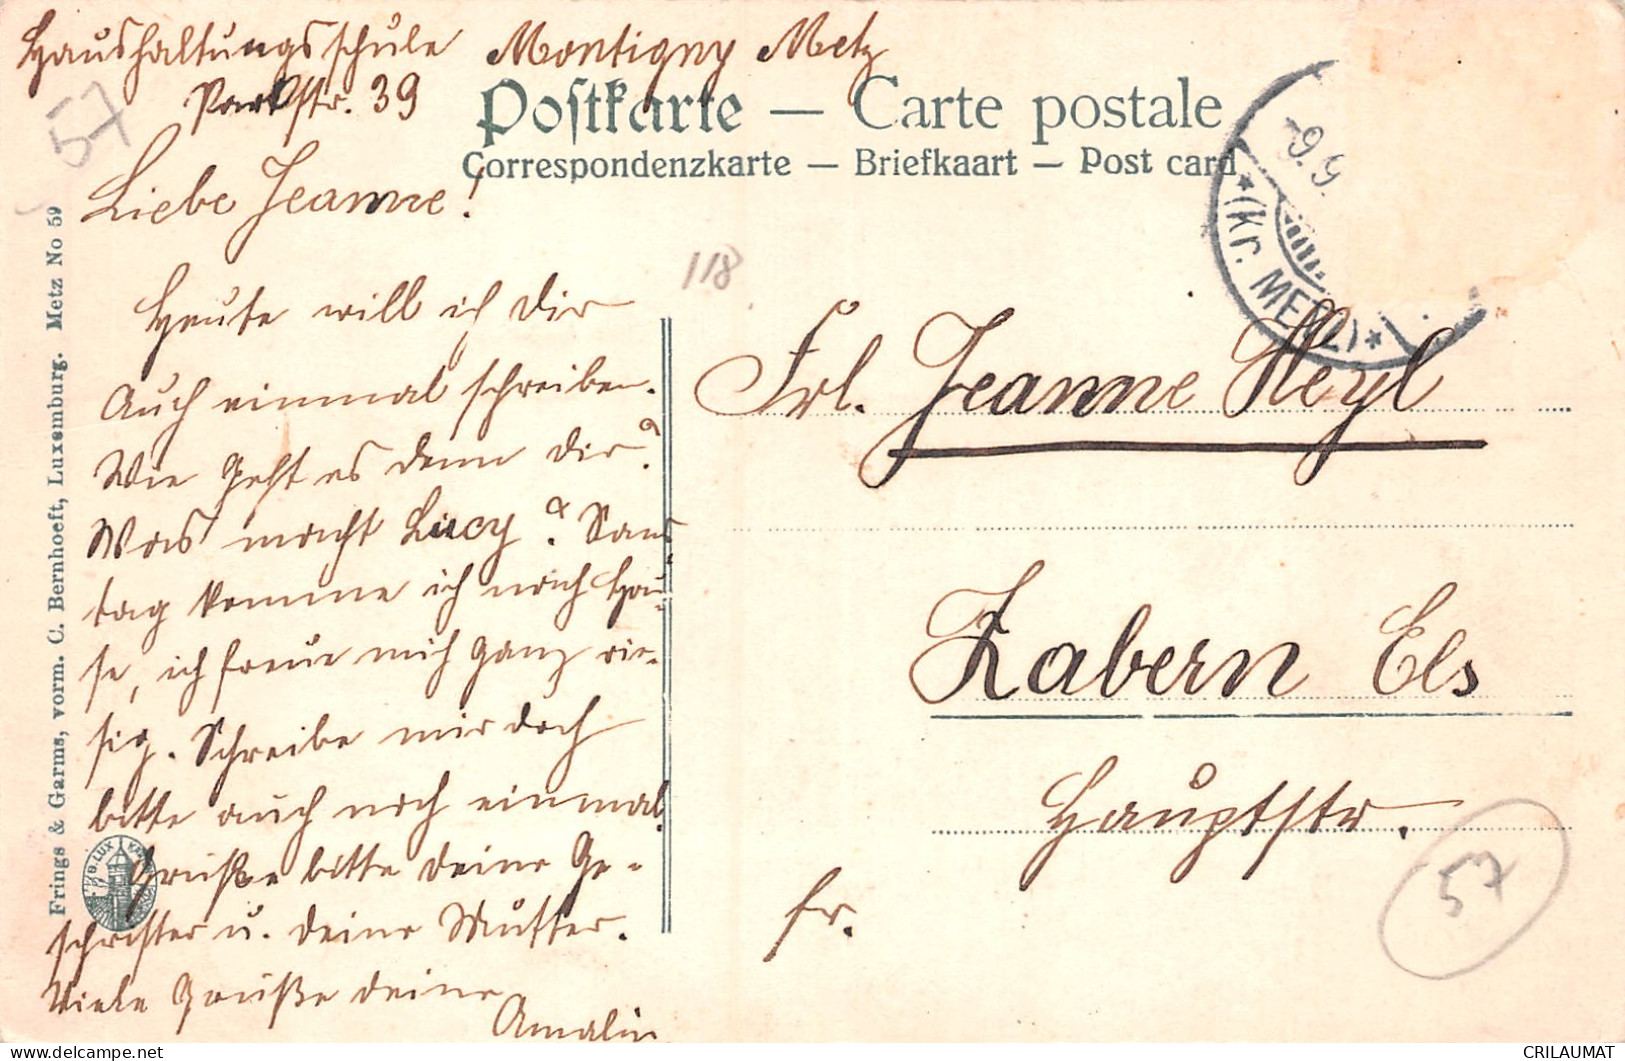 Haushaltungsschule Montigny Metz
Parkstr. 39
57
Postkarte — Carte postale
Correspondenzkarte — Briefkaart — Post card
Liebe Jeanne!
118
Heute will ich dir
Auch einmal schreiben.
Wie geht es denn dir?
Was macht Lucy? Sams-
tag komme ich nach Hau-
se, ich freue mich ganz rie-
sig. Schreibe mir doch
bitte auch noch einmal.
Grüße bitte deine Ge-
schwister u. deine Mutter.
Viele Grüße deine
Amalie
Frings & Garms, vorm. C. Bernhoeft, Luxemburg. Metz No 59
-9.9.
*(Kr. METZ)*
Frl. Jeanne Heyl
Zabern Els
Hauptstr.
fr.
57
CRILAUMAT